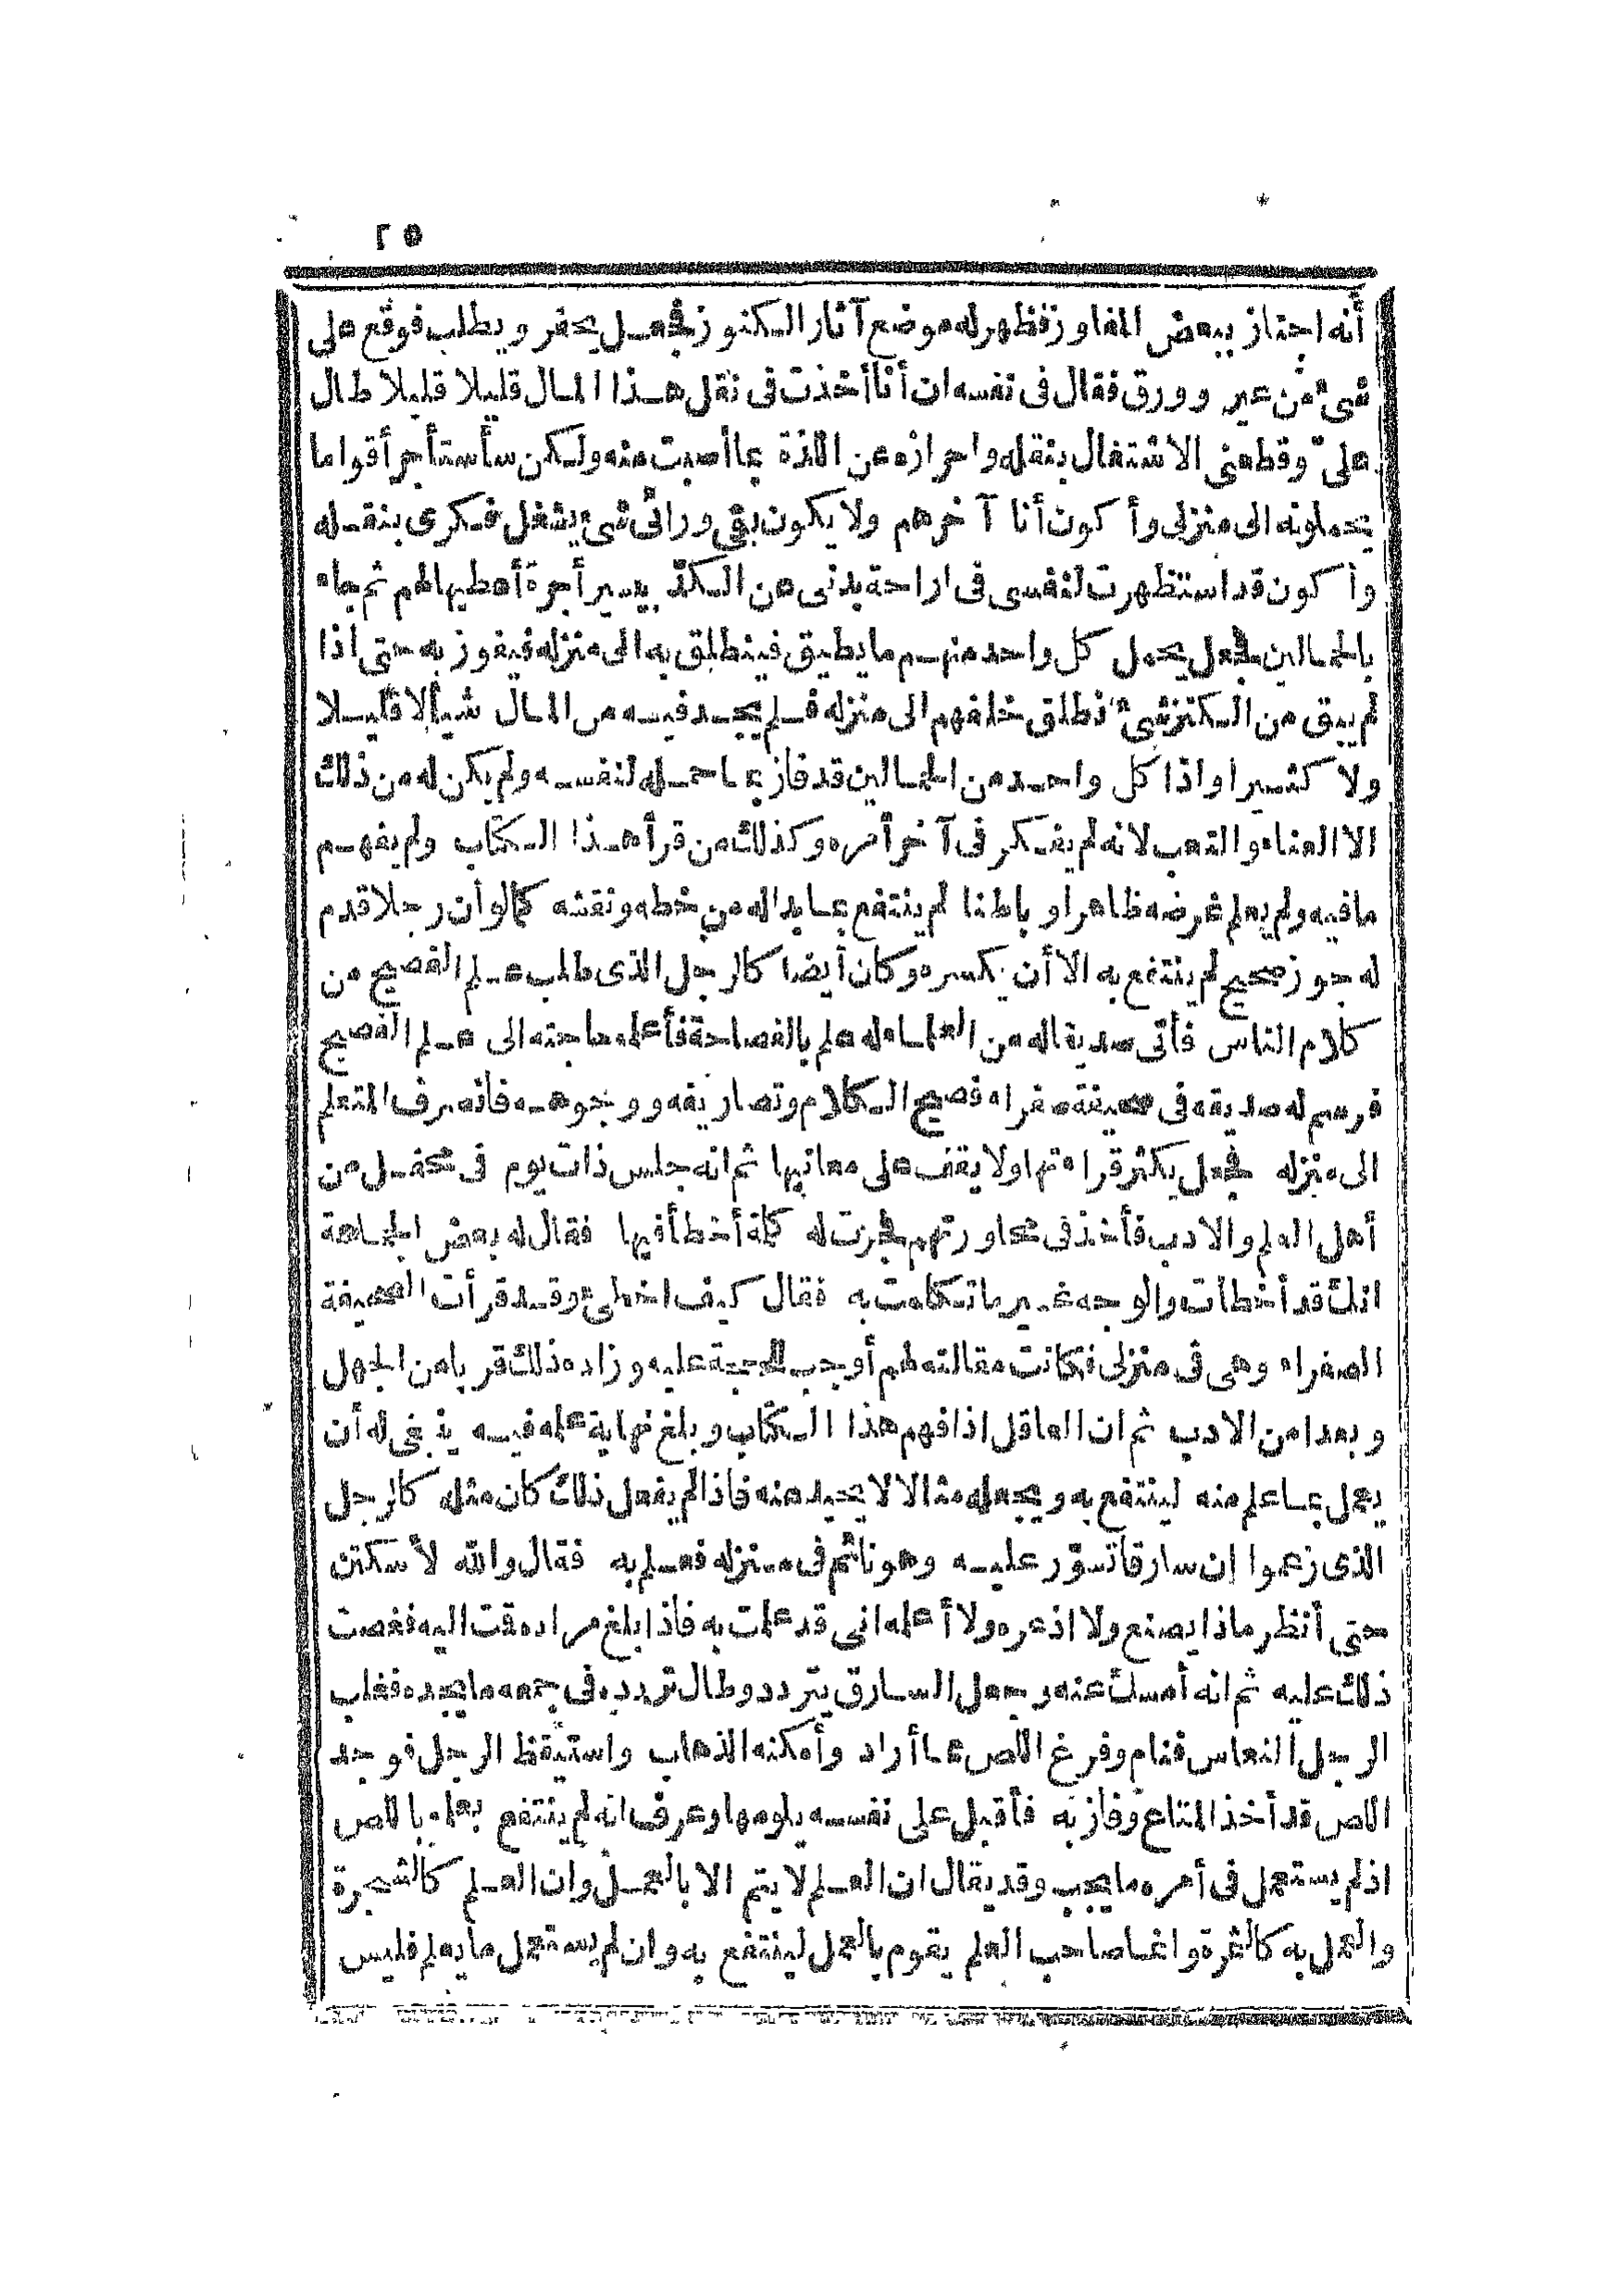 ٢٥
أنه اجتاز ببعض المفاوز فظهر له موضع آثار الكنوز فجعل يحفر ويطلب فوقع على
شئ من عين وورق فقال فى نفسه ان أنا أخذت فى نقل هذا المال قليلا قليلا طال
على وقطعنى الاشتغال بنقله واحرازه عن اللذة بما أصبت منه ولكن سأستأجر أقواما
يحملونه الى منزلى وأكون أنا آخرهم ولا يكون بقى ورائى شئ يشغل فكرى بنقله
وأكون قد استظهرت لنفسى فى اراحة بدنى من الكد بيسير أجرة أعطيها لهم ثم جاء
بالحمالين فجعل يحمل كل واحد منهم ما يطيق فينطلق به الى منزله فيفوز به حتى اذا
لم يبق من الكنز شئ انطلق خلفهم الى منزله فلم يجد فيه من المال شيأ لا قليلا
ولا كثيرا واذا كل واحد من الحمالين قد فاز بما حمله لنفسه ولم يكن له من ذلك
الا العناء والتعب لانه لم يفكر فى آخر أمره وكذلك من قرأ هذا الكتاب ولم يفهم
ما فيه ولم يعلم غرضه ظاهرا وباطنا لم ينتفع بما بدا له من خطه ونقشه كما لو أن رجلا قدم
له جوز صحيح لم ينتفع به الا أن يكسره وكان أيضا كالرجل الذى طلب علم الفصيح من
كلام الناس فأتى صديقا له من العلماء له علم بالفصاحة فأعلمه حاجته الى علم الفصيح
فرسم له صديقه فى صحيفة صفراء فصيح الكلام وتصاريفه ووجوهه فانصرف المتعلم
الى منزله فجعل يكثر قراءتها ولا يقف على معانيها ثم انه جلس ذات يوم فى محفل من
أهل العلم والادب فأخذ فى محاورتهم فجرت له كلمة أخطأ فيها فقال له بعض الجماعة
انك قد أخطأت والوجه غير ما تكلمت به فقال كيف اخطئ وقد قرأت الصحيفة
الصفراء وهى فى منزلى فكانت مقالته لهم أوجب للحجة عليه وزاده ذلك قربا من الجهل
وبعدا من الادب ثم ان العاقل اذا فهم هذا الكتاب وبلغ نهاية علمه فيه ينبغى له أن
يعمل بما علم منه لينتفع به ويجعله مثالا لا يحيد عنه فاذا لم يفعل ذلك كان مثله كالرجل
الذى زعموا ان سارقا تسوّر عليه وهو نائم فى منزله فعلم به فقال والله لأسكتن
حتى أنظر ماذا يصنع ولا اذعره ولا أعلمه انى قد علمت به فاذا بلغ مراده قمت اليه فنغصت
ذلك عليه ثم انه أمسك عنه وجعل السارق يتردد وطال تردده فى جمعه ما يجده فغلب
الرجل النعاس فنام وفرغ اللص مما أراد وأمكنه الذهاب واستيقظ الرجل فوجد
اللص قد أخذ المتاع وفاز به فأقبل على نفسه يلومها وعرف انه لم ينتفع بعلمه باللص
اذ لم يستعمل فى أمره ما يجب وقد يقال ان العلم لا يتم الا بالعمل وان العلم كالشجرة
والعمل به كالثمرة وانما صاحب العلم يقوم بالعمل لينتفع به وان لم يستعمل ما يعلم فليس